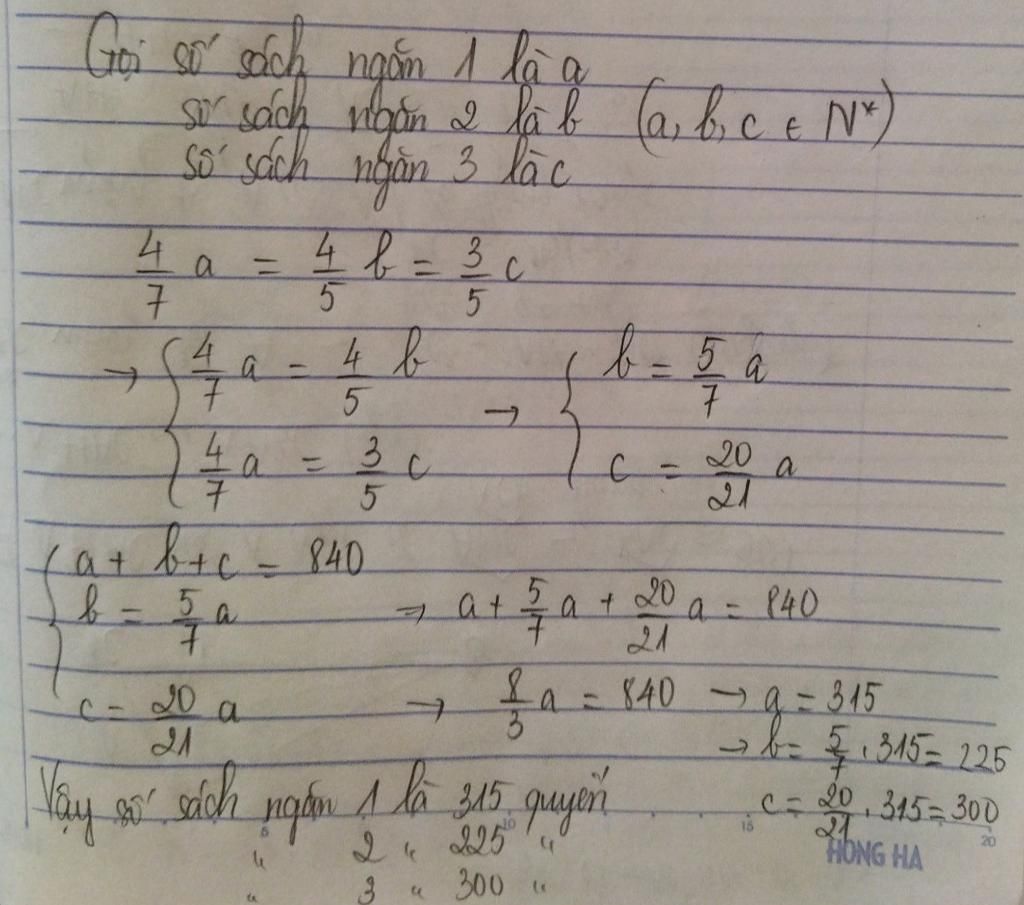 Gọi số sách ngăn 1 là a
số sách ngăn 2 là b (a, b, c ∈ N*)
số sách ngăn 3 là c
4/7 a = 4/5 b = 3/5 c
→ { 4/7 a = 4/5 b → { b = 5/7 a
4/7 a = 3/5 c c = 20/21 a
{ a + b + c = 840
b = 5/7 a → a + 5/7 a + 20/21 a = 840
c = 20/21 a → 8/3 a = 840 → a = 315
→ b = 5/7 . 315 = 225
Vậy số sách ngăn 1 là 315 quyển c = 20/21 . 315 = 300
" 2 " 225 "
" 3 " 300 "
5 10 15 20
HONG HA